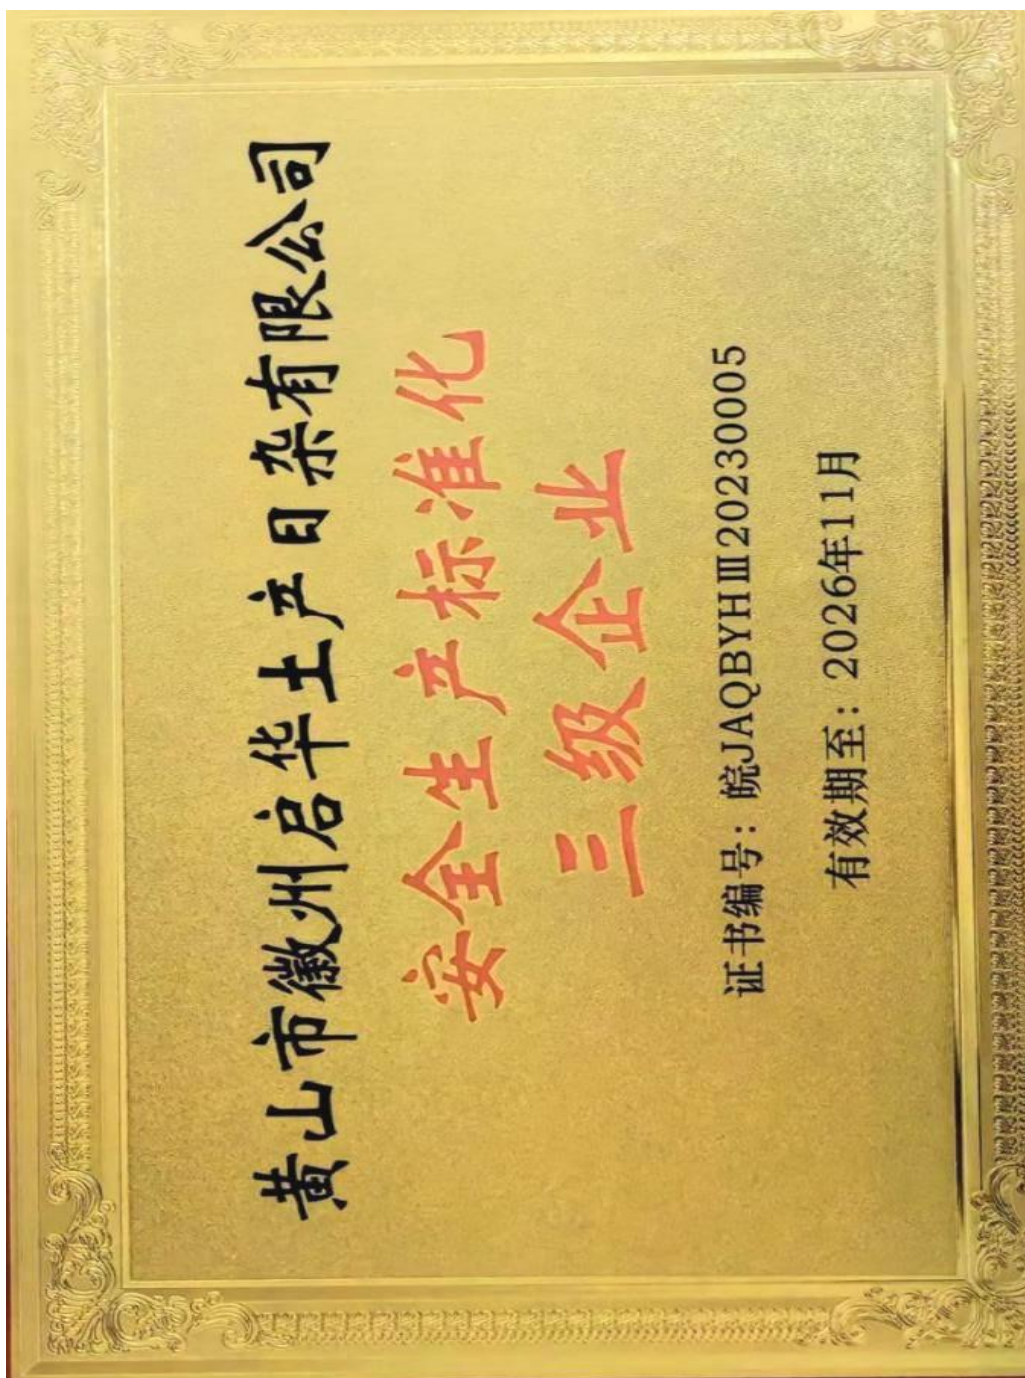 黄山市徽州启华土产日杂有限公司
安全生产标准化
三级企业
证书编号：皖JAQBYHⅢ20230005
有效期至：2026年11月